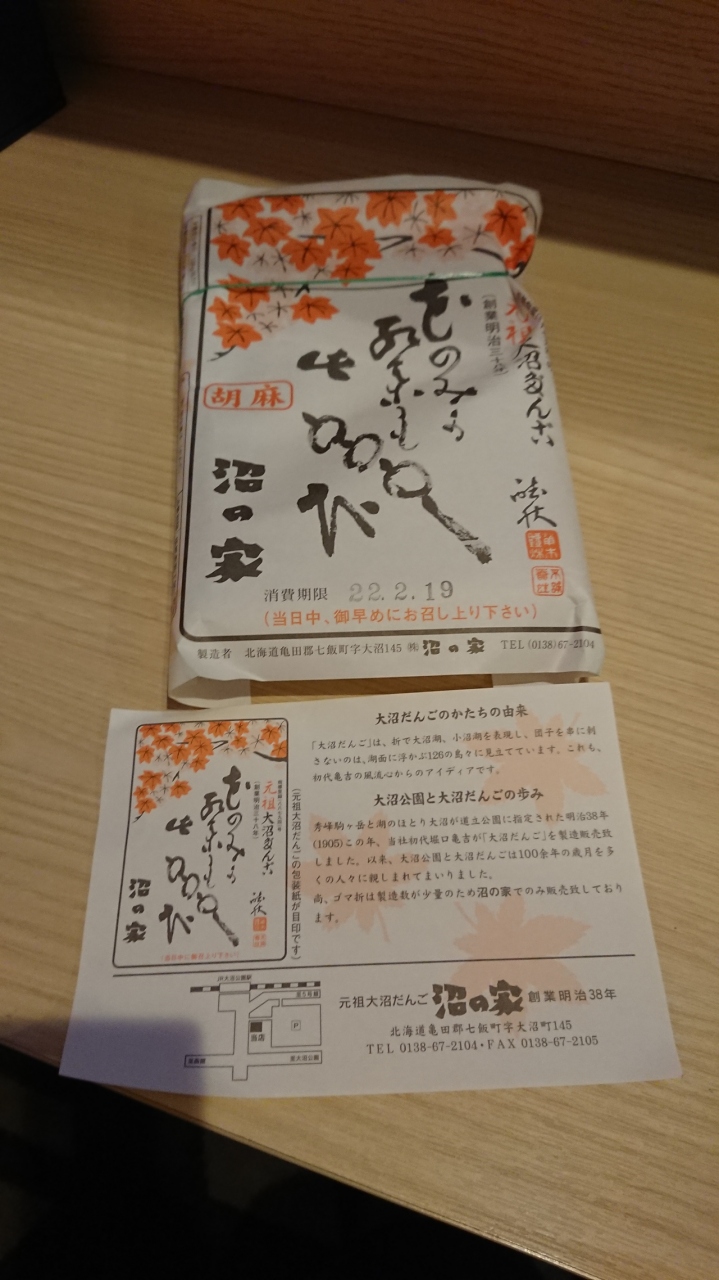 元祖大沼だんご
(創業明治三十八年)
花のみか
もみじにも
此
だんご
胡麻
沼の家
消費期限 22.2.19
(当日中、御早めにお召し上り下さい)
製造者 北海道亀田郡七飯町字大沼145 ㈱沼の家 TEL(0138)67-2104
大沼だんごのかたちの由来
「大沼だんご」は、折で大沼湖、小沼湖を表現し、団子を串に刺
さないのは、湖面に浮かぶ126の島々に見立てています。これも、
初代亀吉の風流心からのアイディアです。
大沼公園と大沼だんごの歩み
秀峰駒ヶ岳と湖のほとり大沼が道立公園に指定された明治38年
(1905)この年、当社初代堀口亀吉が「大沼だんご」を製造販売致
しました。以来、大沼公園と大沼だんごは100余年の歳月を多
くの人々に親しまれてまいりました。
尚、ゴマ折は製造数が少量のため沼の家でのみ販売致しており
ます。
元祖大沼だんご
(創業明治三十八年)
沼の家
(当日中に御召上り下さい)
(元祖大沼だんごの包装紙が目印です)
JR大沼公園駅
当店
P
元祖大沼だんご 沼の家 創業明治38年
北海道亀田郡七飯町字大沼町145
TEL 0138-67-2104・FAX 0138-67-2105